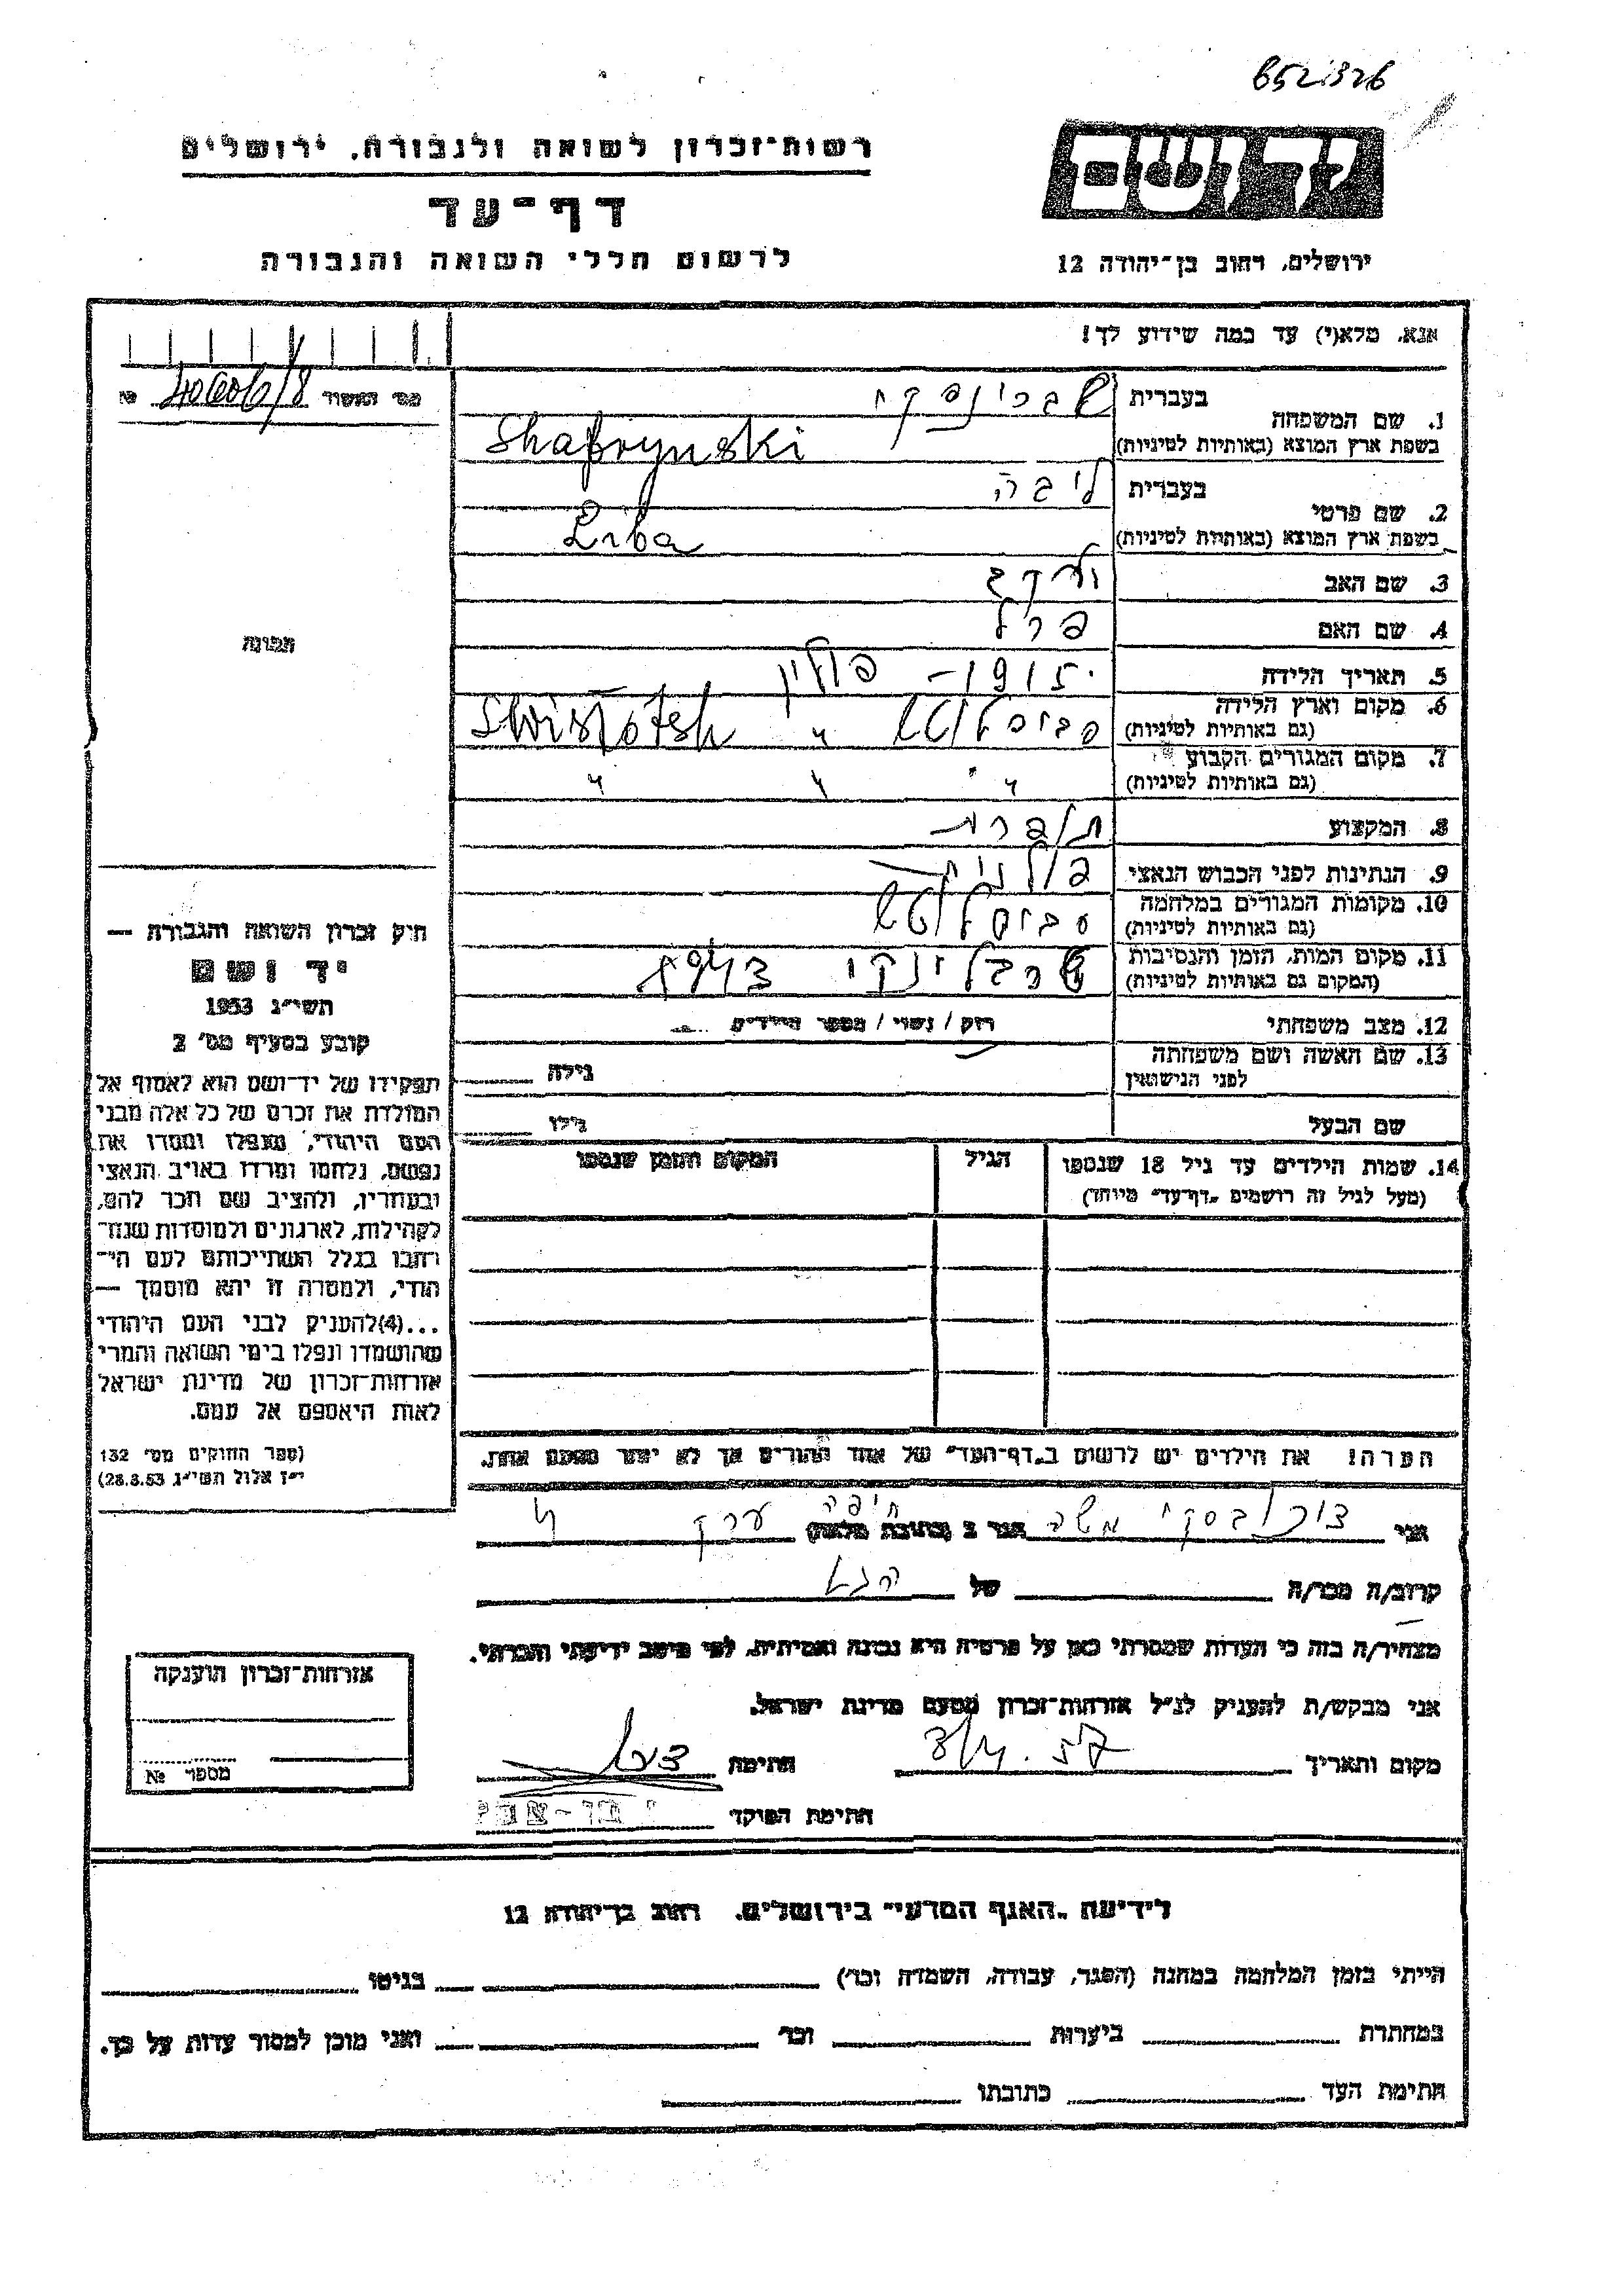 652326
רשות־זכרון לשואה ולגבורה, ירושלים
דף־עד
לרשום חללי השואה והגבורה
יד ושם
ירושלים, רחוב בן־יהודה 12
אנא, מלא(י) עד כמה שידוע לך!
מס' האשור №
1. שם המשפחה בעברית
בשפת ארץ המוצא (באותיות לטיניות) Shafrynski
2. שם פרטי בעברית ליבה
בשפת ארץ המוצא (באותיות לטיניות) Liba
3. שם האב
4. שם האם פרל
5. תאריך הלידה 1915 - פולין
6. מקום וארץ הלידה
(גם באותיות לטיניות) Swislotsh
7. מקום המגורים הקבוע
(גם באותיות לטיניות) " " "
8. המקצוע תופרת
9. הנתינות לפני הכבוש הנאצי פולנית
10. מקומות המגורים במלחמה
(גם באותיות לטיניות)
11. מקום המות, הזמן והנסיבות
(המקום גם באותיות לטיניות) טרבלינקי 1943
12. מצב משפחתי רוק / נשוי / מספר הילדים
13. שם האשה ושם משפחתה
לפני הנישואין גילה
שם הבעל גילו
14. שמות הילדים עד גיל 18 שנספו הגיל המקום והזמן שנספו
(מעל לגיל זה רושמים „דף־עד" מיוחד)
הערה! את הילדים יש לרשום ב„דף־העד" של אחד ההורים אך לא יותר מפעם אחת.
תמונה
חוק זכרון השואה והגבורה —
יד ושם
תשי״ג 1953
קובע בסעיף מס' 2
תפקידו של יד־ושם הוא לאסוף אל
המולדת את זכרם של כל אלה מבני
העם היהודי, שנפלו ומסרו את
נפשם, נלחמו ומרדו באויב הנאצי
ובעוזריו, ולהציב שם וזכר להם,
לקהילות, לארגונים ולמוסדות שנח־
רבו בגלל השתייכותם לעם הי־
הודי, ולמטרה זו יהא מוסמך —
...(4)להעניק לבני העם היהודי
שהושמדו ונפלו בימי השואה והמרי
אזרחות־זכרון של מדינת ישראל
לאות היאספם אל עמם.
(ספר החוקים מס' 132
י״ז אלול תשי״ג 28.8.53)
אני משה הגר ב (כתובת מלאה) חיפה
קרוב/ה מכר/ה של
מצהיר/ה בזה כי העדות שמסרתי כאן על פרטיה היא נכונה ואמיתית, לפי מיטב ידיעתי והכרתי.
אני מבקש/ת להעניק לנ״ל אזרחות־זכרון מטעם מדינת ישראל.
מקום ותאריך חתימה
חתימת הפוקד
אזרחות־זכרון הוענקה
מספר №
לידיעת „האגף המדעי" בירושלים, רחוב בן־יהודה 12
הייתי בזמן המלחמה במחנה (הסגר, עבודה, השמדה וכו') בגיטו
במחתרת ביערות וכו' ואני מוכן למסור עדות על כך.
חתימת העד כתובתו